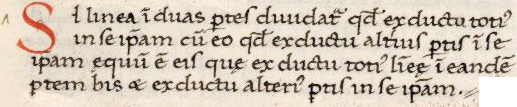 Si linea ī duas ꝑtes diuidat᷑ qđ ex ductu toti⁹
in se ip̄am cū eo qđ ex ductu alti᷑us ꝑtis ī se
ip̄am ęquū ē eis quę ex ductu toti⁹ lin̄ęę ī eandē
ꝑtem bis & ex ductu alteri⁹ ꝑtis in se ip̄am.